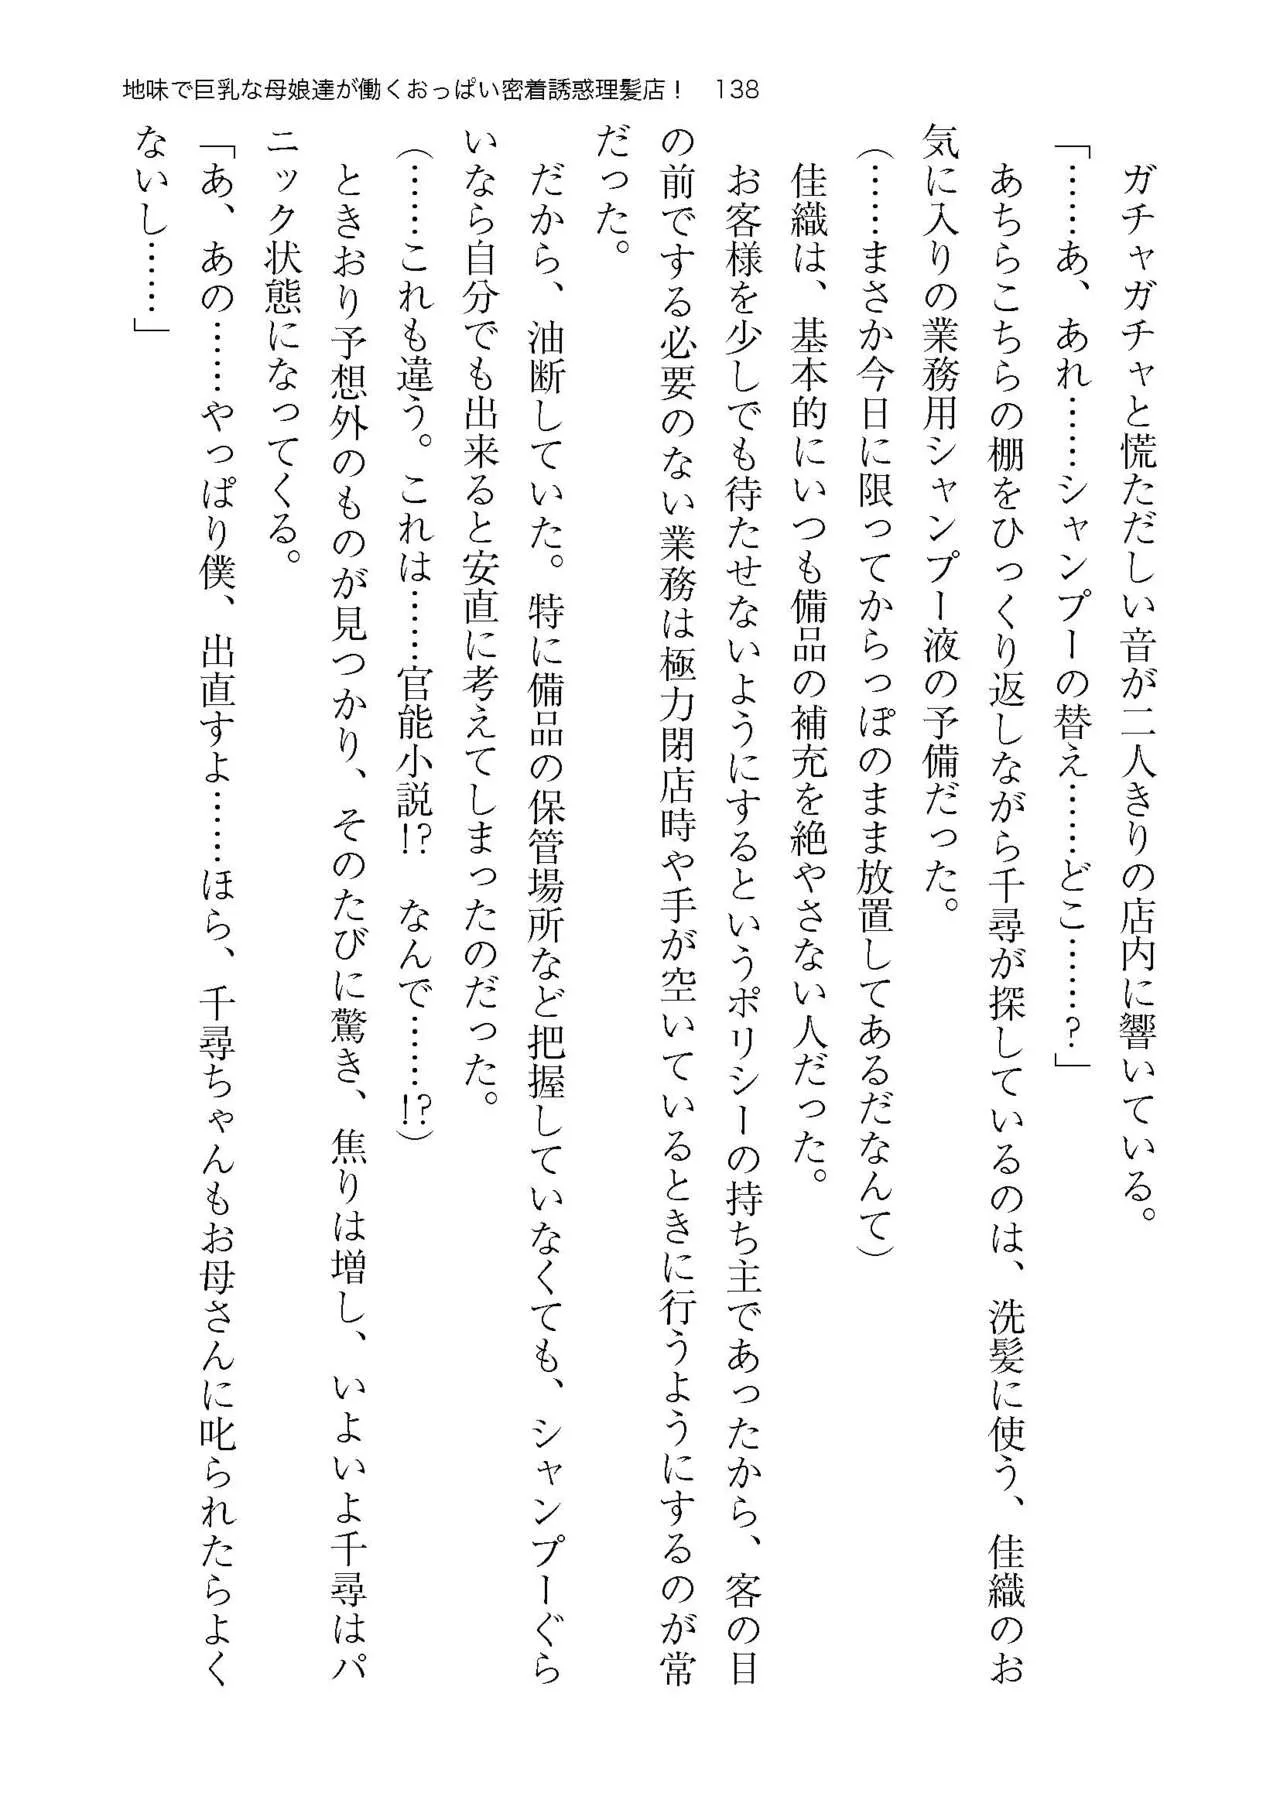 地味で巨乳な母娘達が働くおっぱい密着誘惑理髪店！　138
　ガチャガチャと慌ただしい音が二人きりの店内に響いている。
「……あ、あれ……シャンプーの替え……どこ……？」
　あちらこちらの棚をひっくり返しながら千尋が探しているのは、洗髪に使う、佳織のお
気に入りの業務用シャンプー液の予備だった。
（……まさか今日に限ってからっぽのまま放置してあるだなんて）
　佳織は、基本的にいつも備品の補充を絶やさない人だった。
　お客様を少しでも待たせないようにするというポリシーの持ち主であったから、客の目
の前でする必要のない業務は極力閉店時や手が空いているときに行うようにするのが常
だった。
　だから、油断していた。特に備品の保管場所など把握していなくても、シャンプーぐら
いなら自分でも出来ると安直に考えてしまったのだった。
（……これも違う。これは……官能小説!?　なんで……!?）
　ときおり予想外のものが見つかり、そのたびに驚き、焦りは増し、いよいよ千尋はパ
ニック状態になってくる。
「あ、あの……やっぱり僕、出直すよ……ほら、千尋ちゃんもお母さんに叱られたらよく
ないし……」